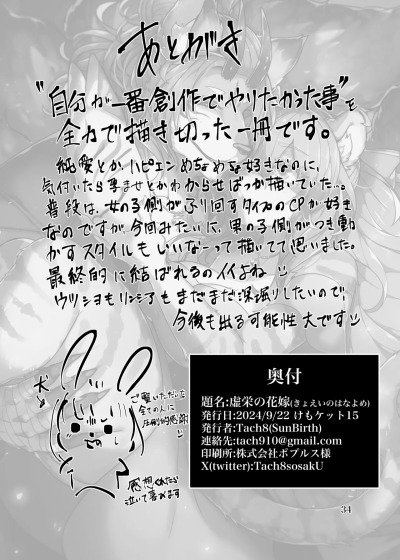 あとがき
"自分が一番創作でやりたかった事"を
全力で描き切った一冊です。
純愛とか、ハピエンめちゃめちゃ好きなのに、
気付いたら孕ませとかわからせばっか描いていた…。
普段は、女の子側がふり回すタイプのCPが好き
なのですが今回みたいに、男の子側がつき動
かすスタイルもいいなーって描いてて思いました。
最終的に結ばれるのイイよね
ウツショもリンシアもまだまだ深掘りしたいので、
今後も出る可能性大です
ご覧いただいた
全ての人に
圧倒的感謝
感想くれたら
泣いて喜びます
奥付
題名:虚栄の花嫁(きょえいのはなよめ)
発行日:2024/9/22 けもケット15
発行者:Tach8(SunBirth)
連絡先:tach910@gmail.com
印刷所:株式会社ポプルス様
X(twitter):Tach8sosakU
34